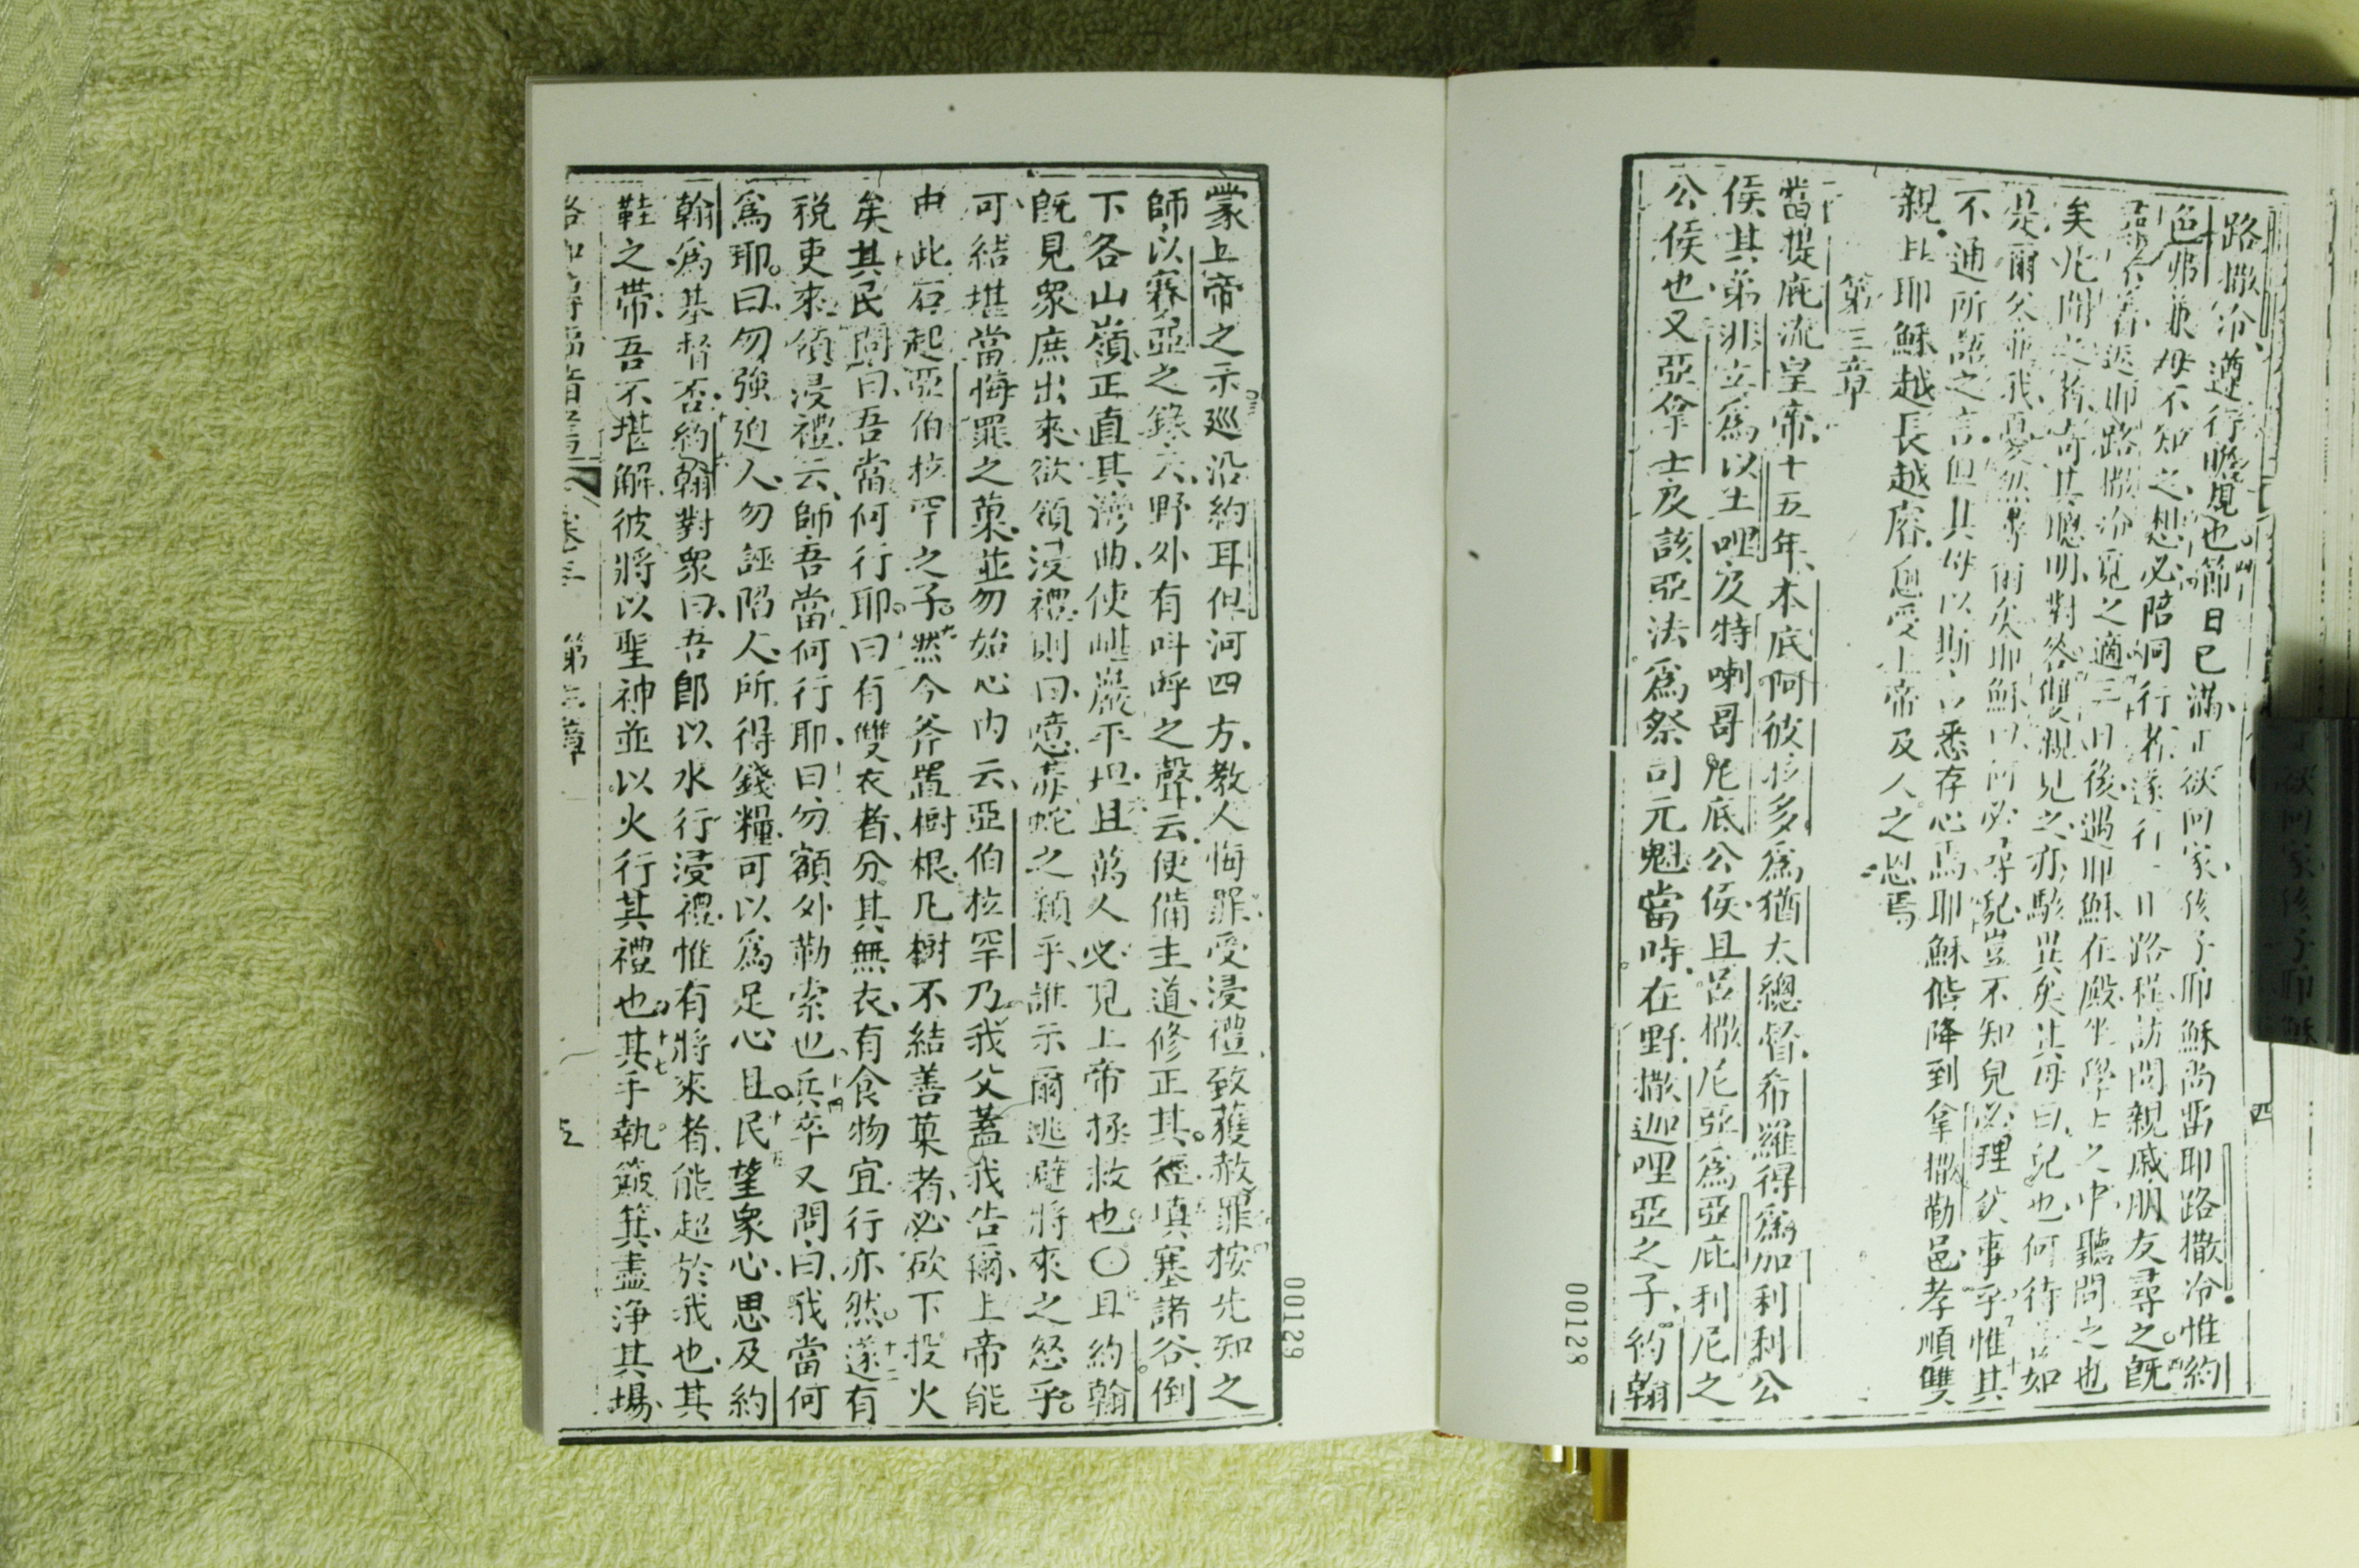 路撒冷遵行瞻覘也節日已滿正欲回家孩子耶穌尚畱耶路撒冷惟約
色弗兼母不知之想必陪同行者遂行一日路程訪問親戚朋友尋之既
不著返耶路撒冷覓之適三日後遇耶穌在殿坐學士之中聽問之也
矣凡聞之者奇其聰明對答雙親見之亦駭異矣其母曰兒也何待 如
是爾父並我憂然尋爾矣耶穌曰何必尋兒豈不知兒必理父事乎惟其
不通所語之言但其母以斯言悉存心焉耶穌偕降到拿撒勒邑孝順雙
親且耶穌越長越 愈受上帝及人之恩焉
第三章
當提庇流皇帝十五年本底阿彼拉多為猶太總督希羅得爲加利利公
侯其弟非立爲以土哩及特喇哥尼底公侯且呂撒尼亞爲亞庇利尼之
公侯也又亞拿士及該亞法爲祭司元魁當時在野撒迦哩亞之子約翰
00128
四
蒙上帝之示巡沿約耳但河四方教人悔罪受浸禮致獲赦罪按先知之
師以賽亞之錄云野外有呌呼之聲云使備主道修正其徑填塞諸谷倒
下各山嶺正直其灣曲使崎巖平坦且萬人必見上帝拯救也〇且約翰
既見眾庶出來欲領浸禮則曰噫毒蛇之類乎誰示爾逃避將來之怒乎
可結堪當悔罪之菓並勿始心內云亞伯拉罕乃我父蓋我告爾上帝能
由此石起亞伯拉罕之子然今斧置樹根凡樹不結善菓者必砍下投火
矣其民問曰吾當何行耶曰有雙衣者分其無衣有食物宜行亦然遂有
稅吏來領浸禮云師吾當何行耶曰勿額外勒索也兵卒又問曰我當何
爲耶曰勿強迫人勿誣陷人所得錢糧可以爲足心且民望眾心思及約
翰爲基督否約翰對眾曰吾卽以水行浸禮惟有將來者能超於我也其
鞋之帶吾不堪解彼將以聖神並以火行其禮也其手執簸箕盡淨其場
卷三 第三章 五
00129